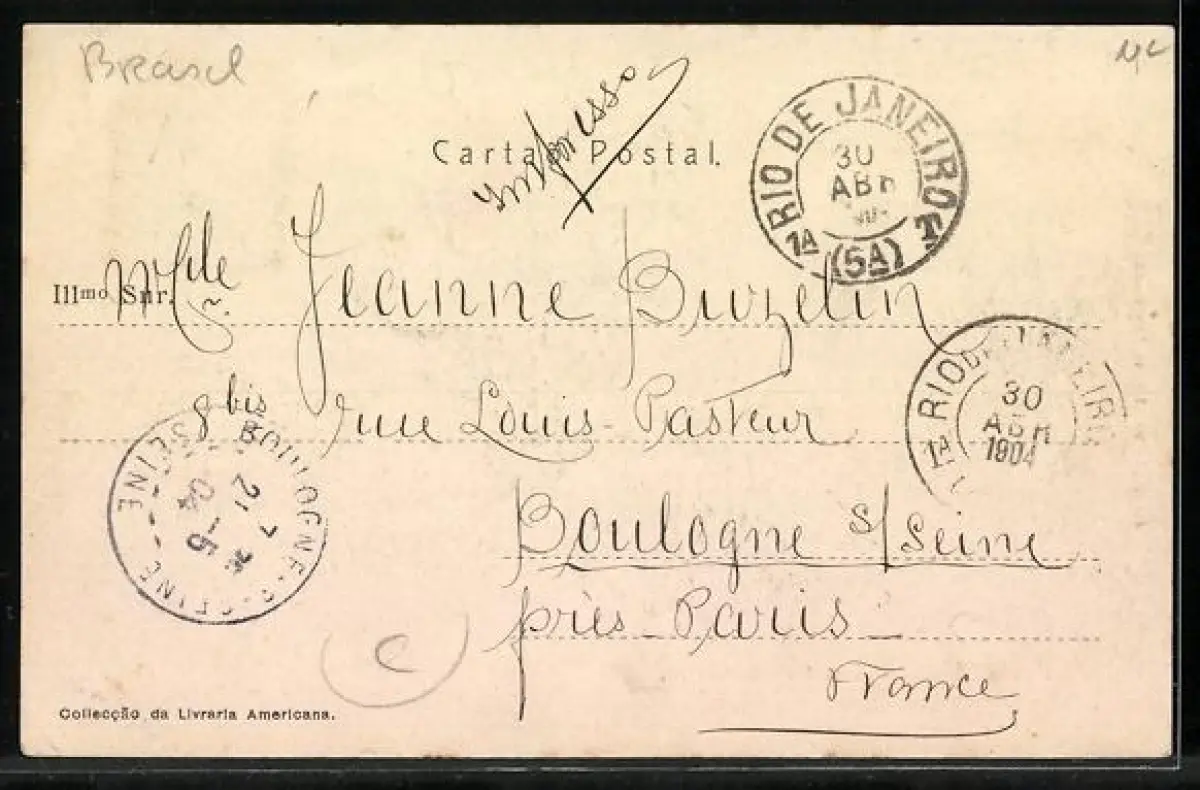 Brasil
Impresso
Carta Postal.
RIO DE JANEIRO
30
ABR
1ª (5ª) T
Illmo Snr.
Mlle Jeanne Buzelin
8 bis rue Louis-Pasteur
RIO DE JANEIRO
30
ABR
1904
1ª
BOULOGNE-S-SEINE
SEINE
7 *
21 -5
04
Boulogne s/Seine
près-Paris-
France
C
Collecção da Livraria Americana.